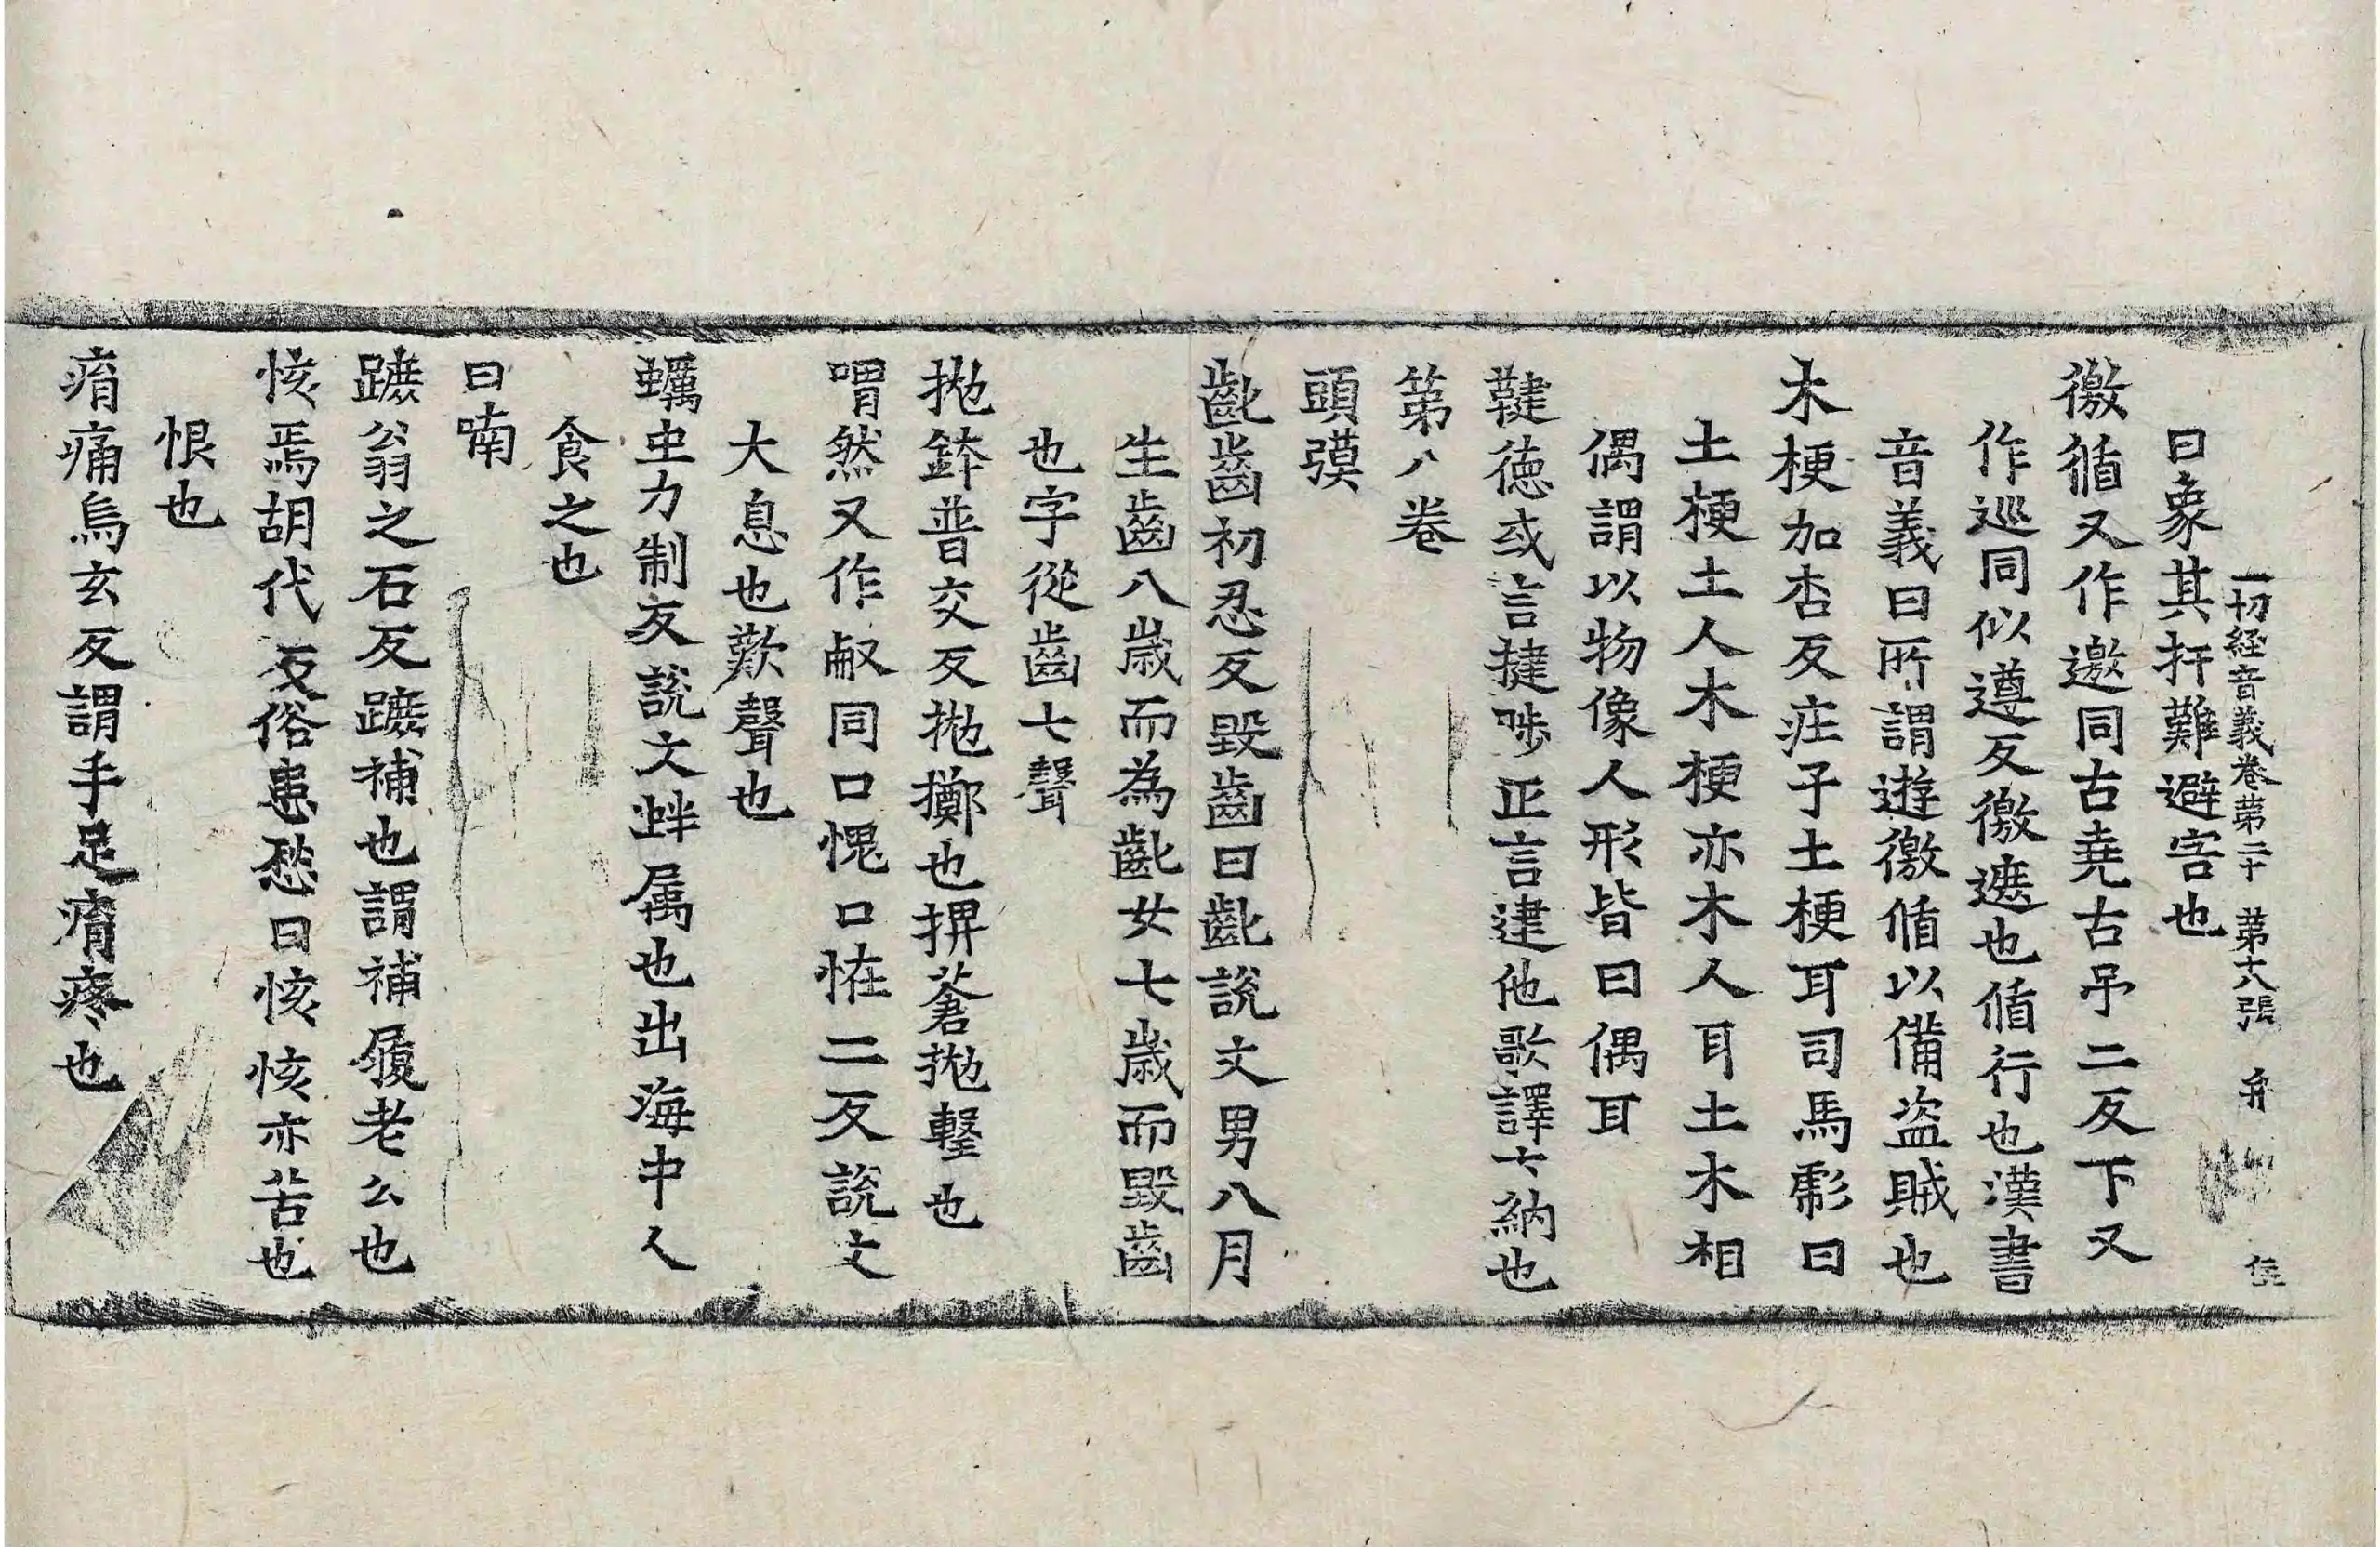 一切経音義卷苐二十 苐十八張 弁
曰象其扞難避害也
徼循又作邀同古堯古吊二反下又
作巡同似遵反徼遮也循行也漢書
音義曰所謂遊徼循以備盗賊也
木梗加杏反庄子土梗耳司馬彪曰
土梗土人木梗亦木人耳土木相
偶謂以物像人形皆曰偶耳
鞬德或言揵㗭正言建他歌譯云納也
苐八卷
頭䫂
齔齒初忍反毀齒曰齔說文男八月
生齒八歲而為齔女七歲而毀齒
也字從齒七聲
抛鉢普交反抛擲也捭蒼抛擊也
喟然又作㕟同口愧口恠二反說文
大息也歎聲也
蠣虫力制反說文蚌属也出海中人
食之也
曰喃
蹠翁之石反蹠補也謂補履老公也
㤥焉胡代反俗患愁曰㤥㤥亦苦也
恨也
痟痛烏玄反謂手足痟疼也